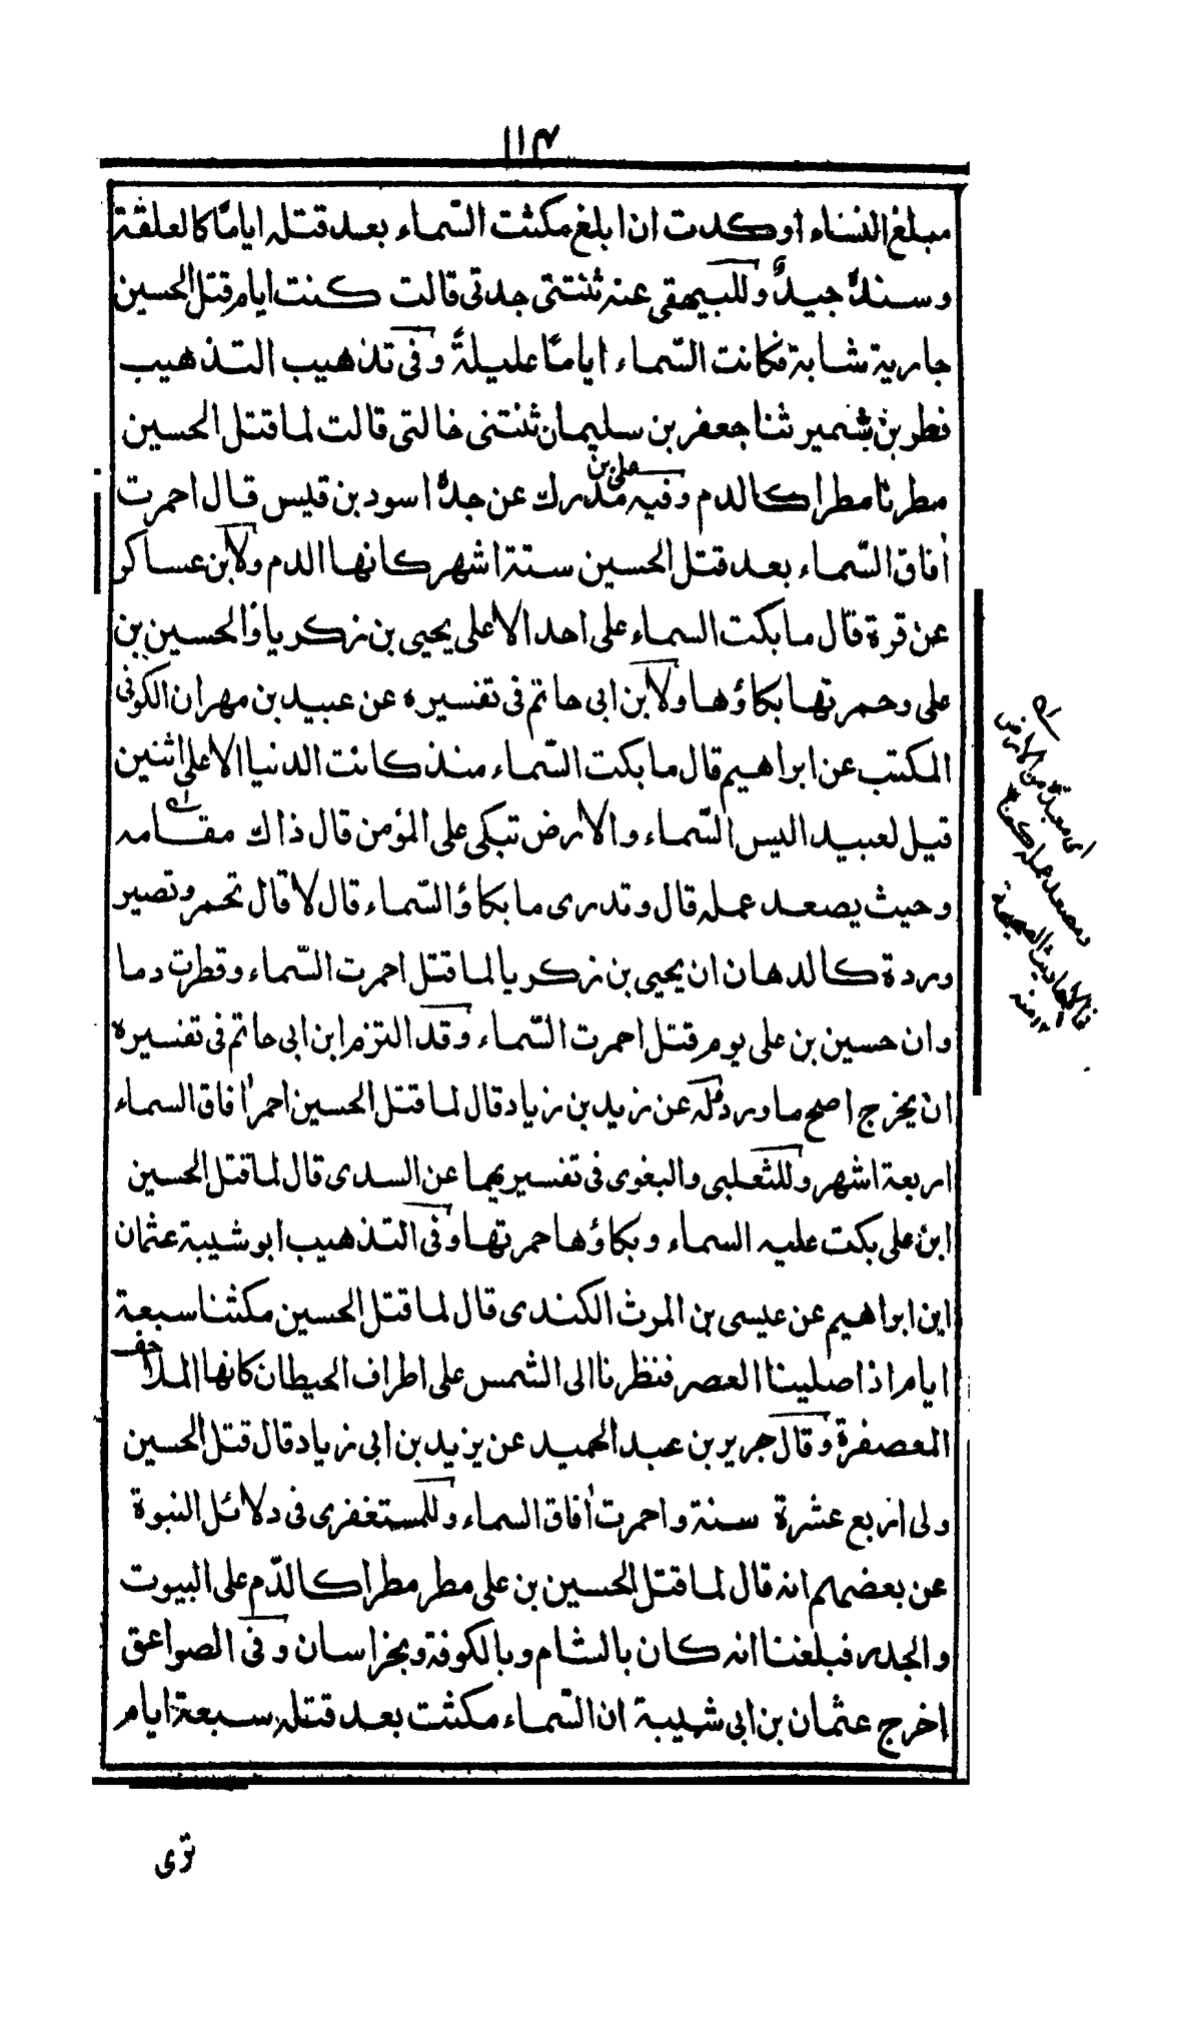 ١١٤
مبلغ النساء او كدت ان ابلغ مكثت السّماء بعد قتله ايامًا كالعلقة
وسندهٗ جيدٌ وللبيهقى عنه ثنتنى جدتى قالت كنت ايام قتل الحسين
جارية شابة فكانت السّماء ايامًا عليلةً وفى تذهيب التذهيب
فطر بن شمير ثنا جعفر بن سليمان ثنتنى خالتى قالت لما قتل الحسين
مطرنا مطرا كالدم وفيه على بن مدرك عن جدهٖ اسود بن قيس قال احمرت
اٰفاق السّماء بعد قتل الحسين ستة اشهر كانها الدم ولابن عساكر
عن قرة قال ما بكت السماء على احد الا على يحيى بن زكريا والحسين بن
على وحمرتها بكاؤها ولابن ابى حاتم فى تفسيره عن عبيد بن مهران الكوفى
المكتب عن ابراهيم قال ما بكت السّماء منذ كانت الدنيا الا على اثنين
قيل لعبيد اليس السّماء والارض تبكى على المؤمن قال ذاك مقامه
وحيث يصعد عمله قال وتدرى ما بكاؤ السّماء قال لا قال تحمر وتصير
وردة كالدهان ان يحيى بن زكريا لما قتل احمرت السّماء وقطرت دما
وان حسين بن على يوم قتل احمرت السّماء وقد التزم ابن ابى حاتم فى تفسيره
ان يخرج اصح ما ورد وله عن زيد بن زياد قال لما قتل الحسين احمر اٰفاق السماء
اربعة اشهر وللثعلبى والبغوى فى تفسيريهما عن السدى قال لما قتل الحسين
ابن على بكت عليه السماء وبكاؤها حمرتها وفى التذهيب ابو شيبة عثمان
ابن ابراهيم عن عيسى بن المرث الكندى قال لما قتل الحسين مكثنا سبعة
ايام اذا صلينا العصر فنظرنا الى الشمس على اطراف الحيطان كانها الملاحف
المعصفرة وقال جرير بن عبد الحميد عن يزيد بن ابى زياد قال قتل الحسين
ولى اربع عشرة سنة واحمرت اٰفاق السماء وللمستغفرى فى دلائل النبوة
عن بعضهم انه قال لما قتل الحسين بن على مطر مطرا كالدّم على البيوت
والجدر فبلغنا انه كان بالشام وبالكوفة وبخراسان وفى الصواعق
اخرج عثمان بن ابى شيبة ان السّماء مكثت بعد قتله سبعة ايام
من الارض
ومصعد عمله
الصحيحة
١٢ منه
ترى